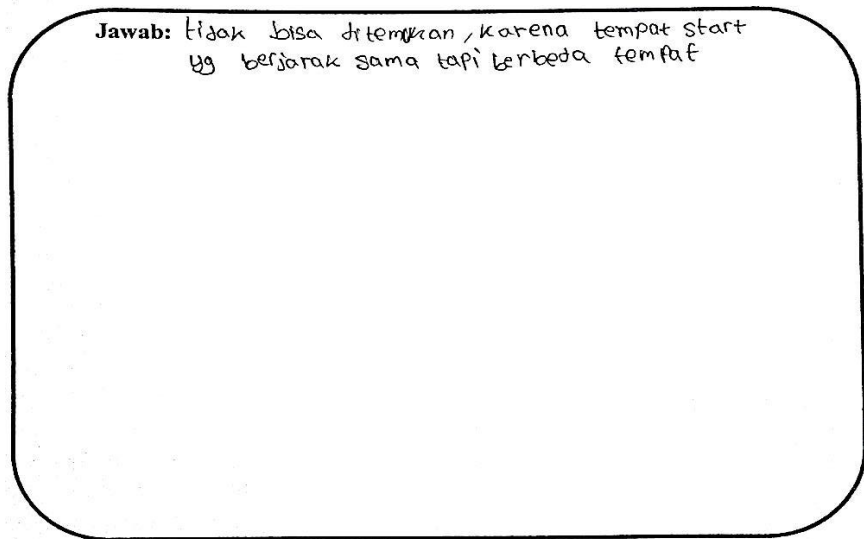 Jawab: tidak bisa ditemukan, karena tempat start
yg berjarak sama tapi berbeda tempat